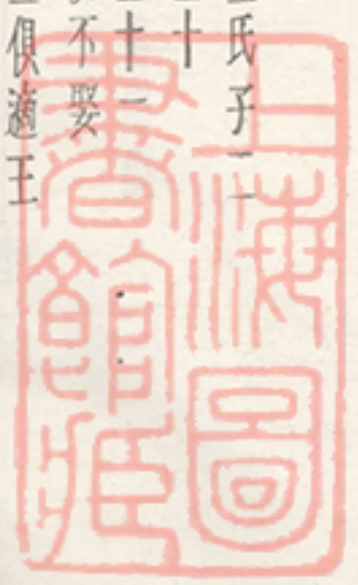 氏子二
十
十一
不娶
俱適王
上海圖
書館藏